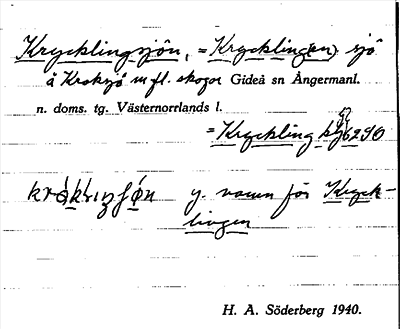 Krycklingsjön, = Kryckling(en) sjö
å Kroksjö m fl. skogar Gideå sn Ångermanl.
n. doms. tg. Västernorrlands l.
= Kryckling
y. namn för Kryck-
lingen
H. A. Söderberg 1940.